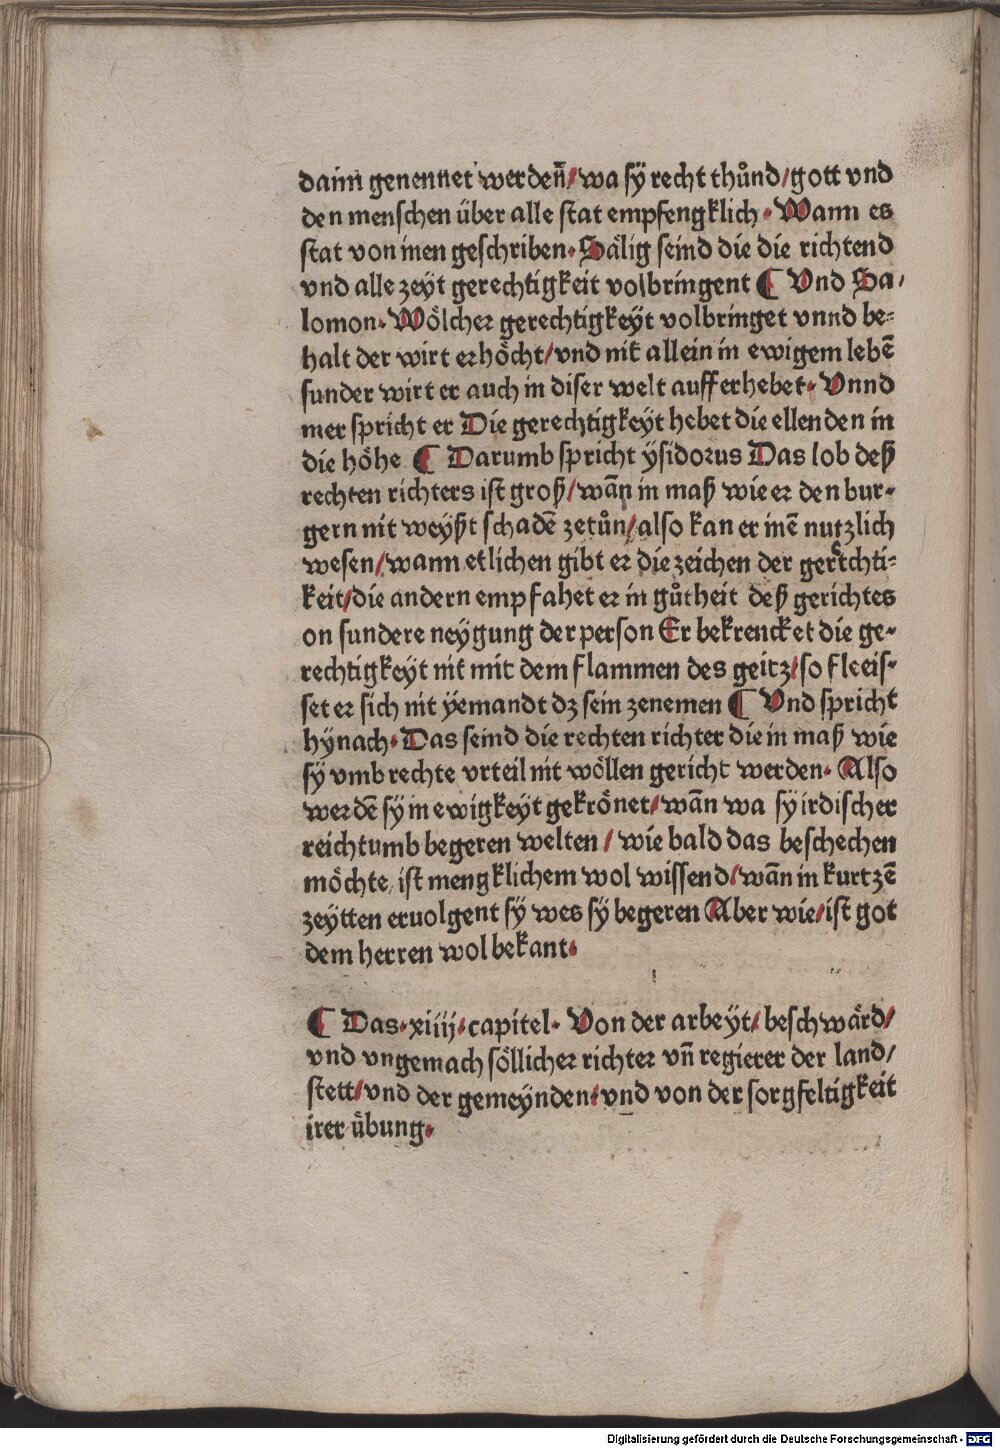 dann genennet werden̄/wa sÿ recht thůnd/gott vnd
den menschen über alle stat empfengklich. Wann es
stat von inen geschriben. Sälig seind die die richtend
vnd alle zeyt gerechtigkeit volbringent ¶ Vnd Sa/
lomon. Wölcher gerechtigkeyt volbringet vnnd be⸗
halt der wirt erhöcht/vnd nit allein in ewigem lebē
sunder wirt er auch in diser welt auff erhebet. Vnnd
mer spricht er Die gerechtigkeyt hebet die ellenden in
die höhe ¶ Darumb spricht ÿsidorus Das lob deß
rechten richters ist groß/wañ in maß wie er den bur⸗
gern nit weÿßt schadē zetůn/also kan er inē nutzlich
wesen/wann etlichen gibt er die zeichen der gerechti⸗
keit/die andern empfahet er in gůtheit deß gerichtes
on sundere neÿgung der person Er bekrencket die ge⸗
rechtigkeyt nit mit dem flammen des geitz/so fleeis⸗
set er sich nit ÿemandt dz sein zenemen ¶ Vnd spricht
hÿnach. Das seind die rechten richter die in maß wie
sÿ vmb rechte vrteil nit wöllen gericht werden. Also
werdē sÿ in ewigkeyt gekrönet/wañ wa sÿ irdischer
reichtumb begeren welten/ wie bald das beschechen
möchte/ist mengklichem wol wissend/wañ in kurtzē
zeÿtten eruolgent sÿ wes sÿ begeren Aber wie/ist got
dem herren wol bekant.
¶ Das.xiiij.capitel. Von der arbeÿt/beschwärd/
vnd vngemach söllicher richter vñ regierer der land/
stett/vnd der gemeÿnden/vnd von der sorgfeltigkeit
irer übung.
Digitalisierung gefördert durch die Deutsche Forschungsgemeinschaft - DFG